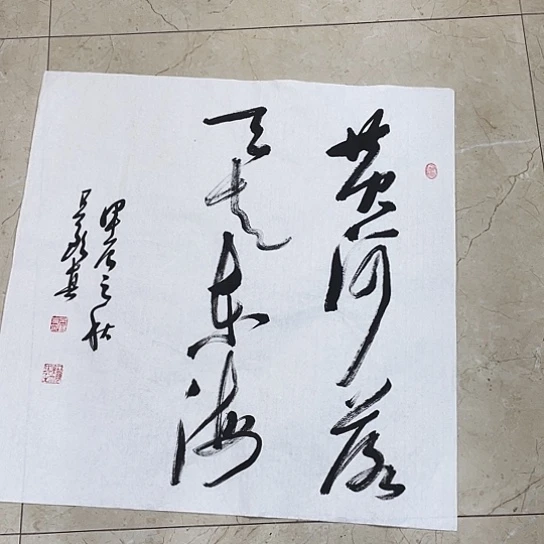 黄河落
天走东海
甲辰之秋
真